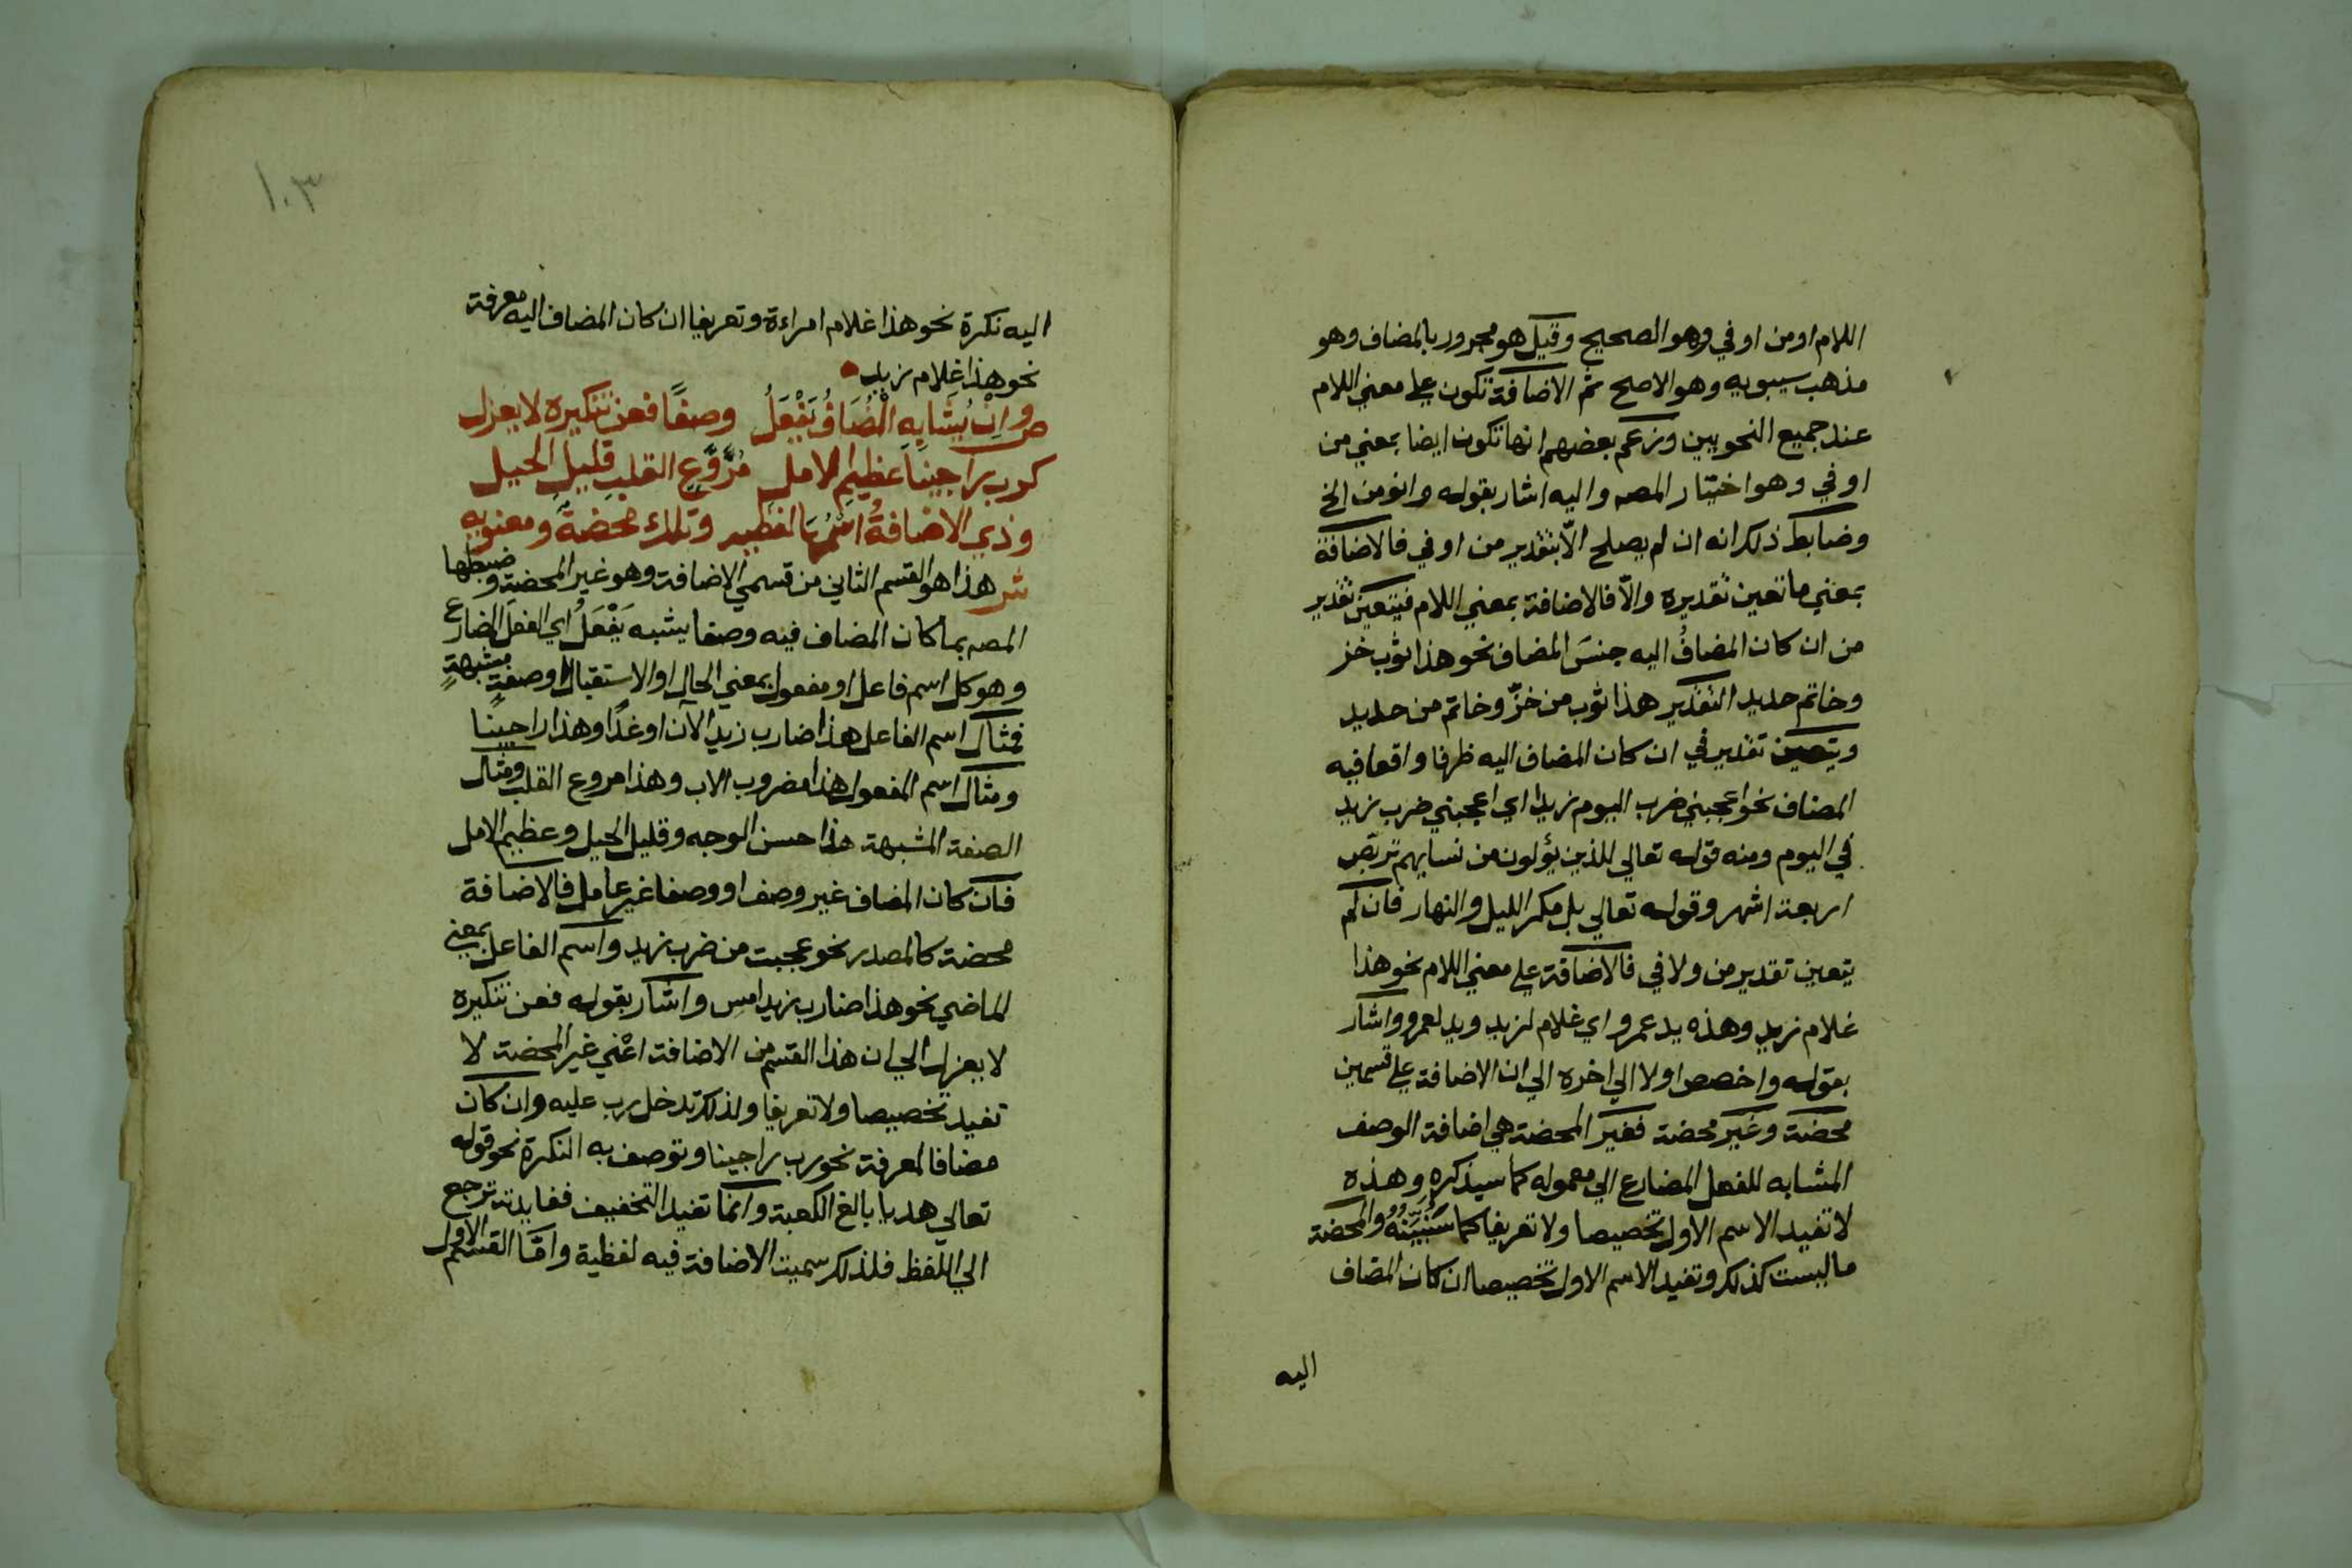 اللام او من او في وهو الصحيح وقيل هو مجرور بالمضاف وهو
مذهب سيبويه وهو الاصح ثم الاضافة تكون علي معني اللام
عند جميع النحويين وزعم بعضهم انها تكون ايضا بمعني من
او في وهو اختيار المصه واليه اشار بقوله وانو من الخ
وضابط ذلك انه ان لم يصلح الّا بتقدير من او في فالاضافة
بمعني ما تعين تقديره والّا فالاضافة بمعني اللام فيتعين تقدير
من ان كان المضافُ اليه جنسَ المضاف نحو هذا ثوب خز
وخاتم حديد التقدير هذا ثوب من خزّ وخاتم من حديد
ويتعين تقدير في ان كان المضاف اليه ظرفا واقعا فيه
المضاف نحو اعجبني ضرب اليوم زيدا اي اعجبني ضرب زيد
في اليوم ومنه قوله تعالي للذين يؤلون من نسايهم تربّص
اربعة اشهر وقوله تعالي بل مكر الليل والنهار فان لم
يتعين تقدير من ولا في فالاضافة علي معني اللام نحو هذا
غلام زيد وهذه يد عمرو اي غلام لزيد ويد لعمرو واشار
بقوله واخصص اولا الي اخره الي ان الاضافة علي قسمين
محضة وغير محضة فغير المحضة هي اضافة الوصف
المشابه للفعل المضارع الي معموله كما سيذكره وهذه
لا تفيد الاسم الاول تخصيصا ولا تعريفا كما سَنُبَيِّنُهُ والمحضة
ما ليست كذلك وتفيد الاسم الاول تخصيصا ان كان المضاف
اليه
١٠٣
اليه نكرة نحو هذا غلام امراءة وتعريفا ان كان المضاف اليه معرفة
نحو هذا غلام زيد
ص وانْ يُشَابِهِ الْمُضَافُ يَفْعَلُ وصفًا فعن تنكيره لا يعزل
كرب راجينا عظيمِ الامل مُرَوَّعِ القلبِ قليلِ الحيل
وذي الاضافةُ اسْمُهَا لفظيه وتلك محضةٌ ومعنويه
ش هذا هو القسم الثاني من قسمي الاضافة وهو غير المحضة وضبطها
المصه بما كان المضاف فيه وصفا يشبه يَفْعَلُ اي الفعل المضارع
وهو كل اسم فاعل او مفعول بمعني الحال او الاستقبال او صفةٍ مشبهةٍ
فمثال اسم الفاعل هذا ضارب زيد الآن او غدًا وهذا راجينا
ومثال اسم المفعول هذا مضروب الاب وهذا مروع القلب ومثال
الصفة المشبهة هذا حسن الوجه وقليل الحيل وعظيم الامل
فان كان المضاف غير وصف او وصفا غير عامل فالاضافة
محضة كالمصدر نحو عجبت من ضرب زيد واسم الفاعل بمعني
الماضي نحو هذا ضارب زيد امس واشار بقوله فعن تنكيره
لا يعزل الي ان هذا القسم من الاضافة اعني غير المحضة لا
تفيد تخصيصا ولا تعريفا ولذلك تدخل رب عليه وان كان
مضافا لمعرفة نحو رب راجينا وتوصف به النكرة نحو قوله
تعالي هديا بالغ الكعبة وانما تفيد التخفيف ففايدته ترجع
الي اللفظ فلذلك سميت الاضافة فيه لفظية وامّا القسم الاول